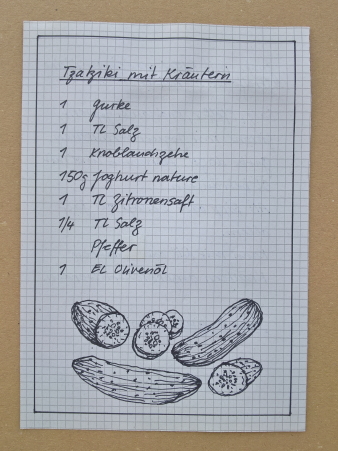 Tzatziki mit Kräutern
1 Gurke
1 TL Salz
1 Knoblauchzehe
150g Joghurt nature
1 TL Zitronensaft
1/4 TL Salz
Pfeffer
1 EL Olivenöl